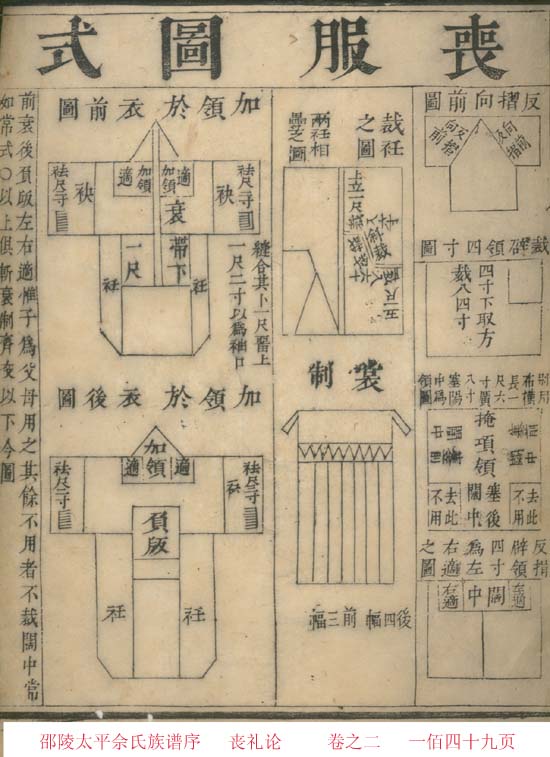 喪服圖式
反摺向前圖
向前反摺
向前反摺
裁辟領四寸圖
四寸下取方
裁入四寸
別用
布橫
長一
尺六
寸廣
中為
領圖
掩項領
塞後
闊中
去此
不用
去此
不用
反摺
辟領
四寸
為左
右適
之圖
左適
闊中
右適
裁衽
之圖
兩衽相
疊之圖
上立一尺
裳制
前三幅
後四幅
加領於衣前圖
袪尺二寸
袂
適
加領
加領
適
袂
袪尺二寸
衰
帶下
一尺
衽
衽
縫合其下一尺留上
一尺二寸以為袖口
加領於衣後圖
袪尺二寸
袂
適
加領
適
袪尺二寸
負版
衽
衽
前衰後負版左右適惟子為父母用之其餘不用者不裁闊中常
如常式○以上俱斬衰制齊衰以下今圖
邵陵太平余氏族谱序 丧礼论 卷之二 一佰四十九页